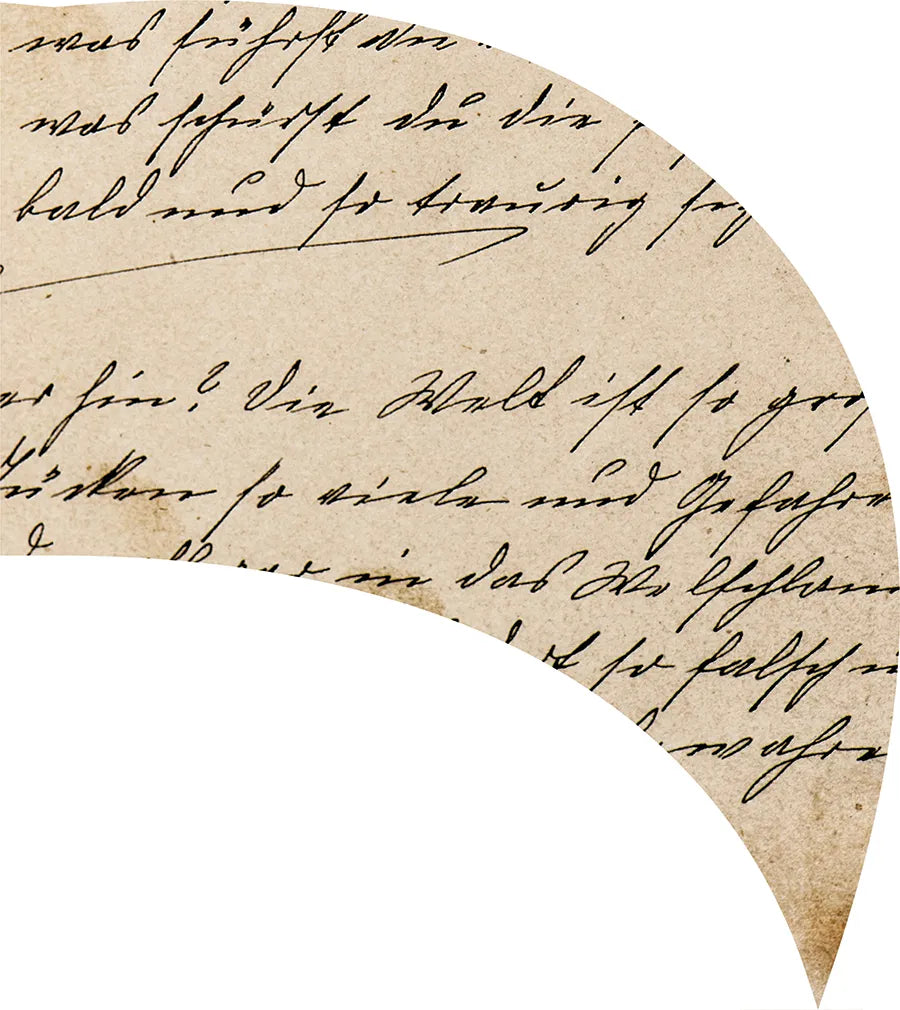 was führst du
was schürst du die
bald und so traurig
hin? Die Welt ist so
Tücken so viele und Gefahre
in das Welschlan
so falsch
wahre